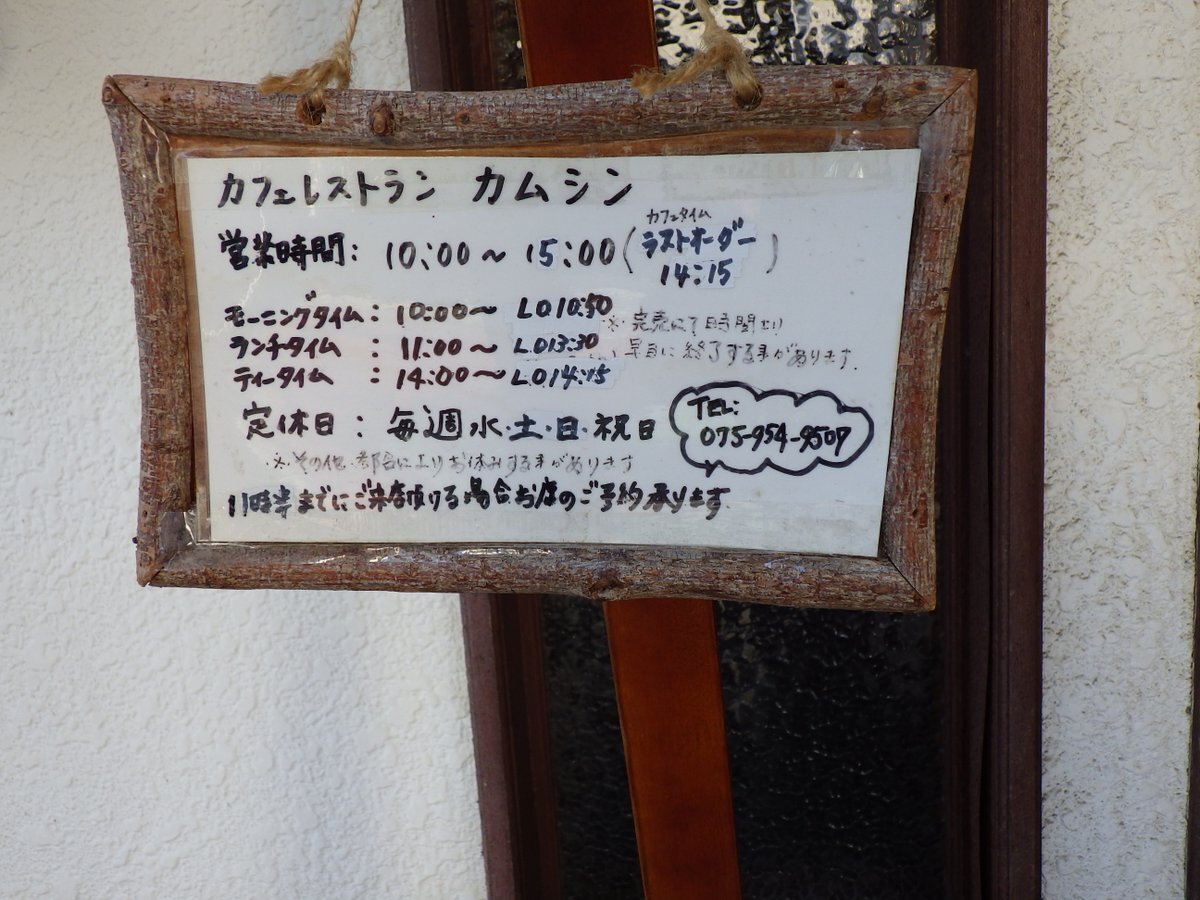 カフェレストラン カムシン
営業時間: 10:00～15:00(カフェタイム ラストオーダー 14:15)
モーニングタイム: 10:00～LO10:50
ランチタイム : 11:00～LO13:30
ティータイム : 14:00～LO14:15
※完売にて時間より
早目に終了する事があります.
定休日: 毎週水・土・日・祝日
TEL:
075-954-9507
※その他・都合によりお休みする事があります
11時半までにご来店頂ける場合お店のご予約承ります.